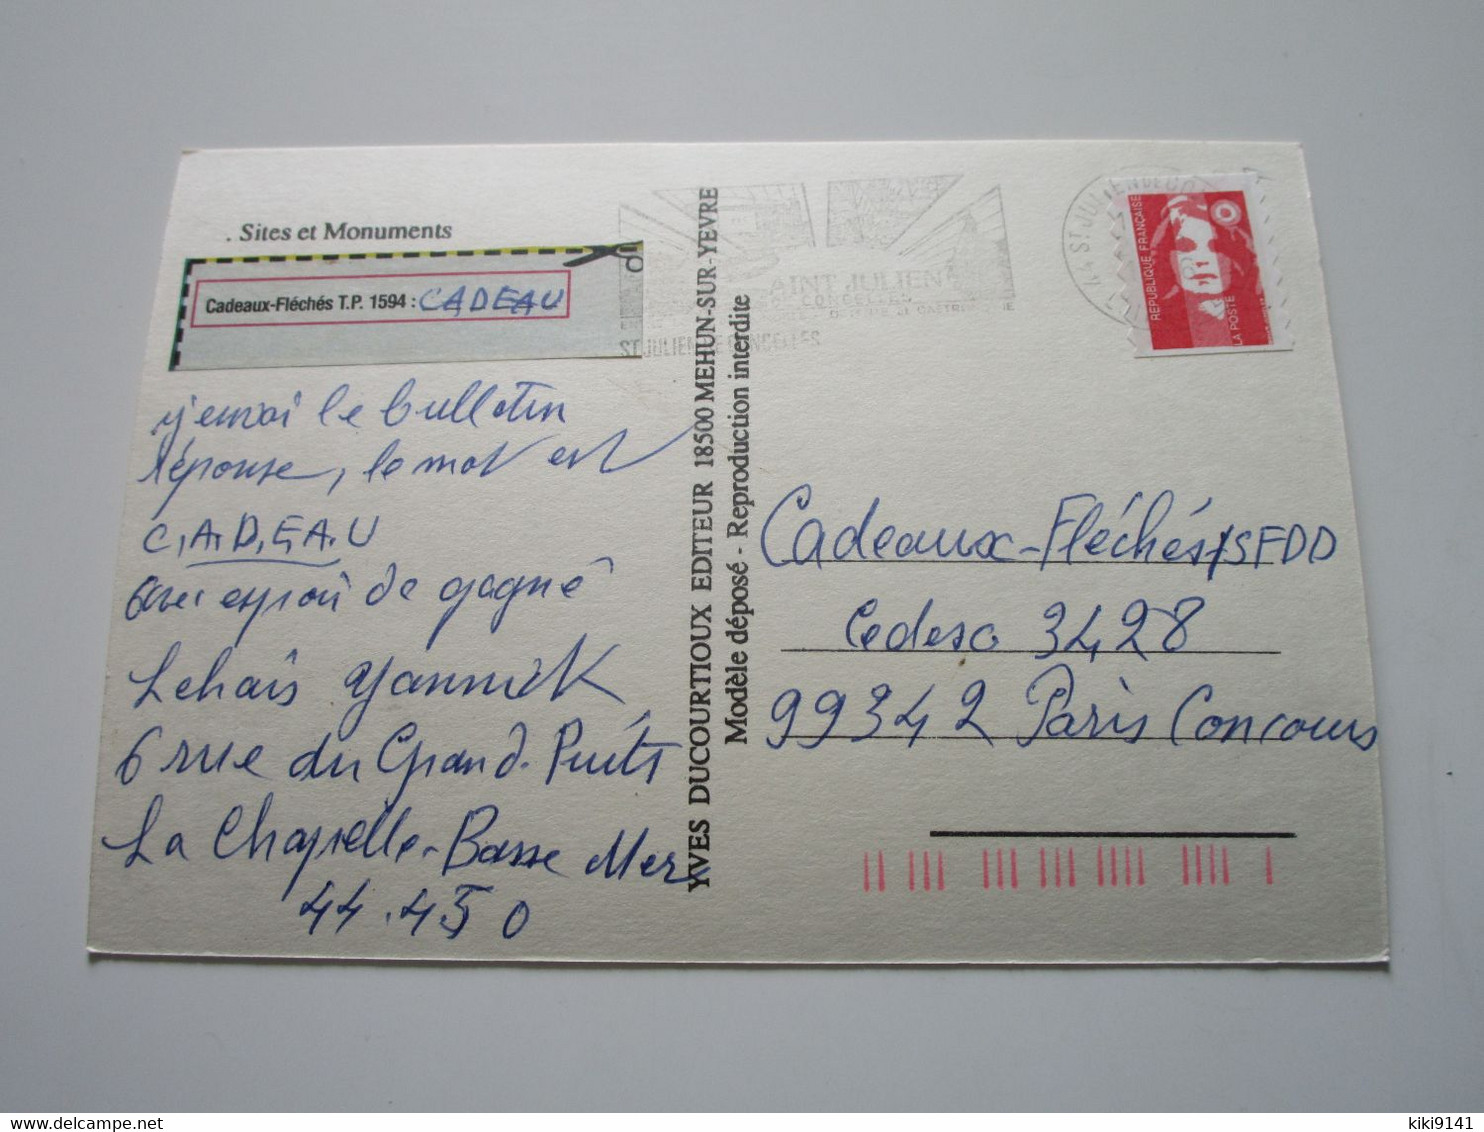 . Sites et Monuments
Cadeaux-Fléchés T.P. 1594 : CADEAU
j'envoi le bulletin
réponse, le mot est
C.A.D.E.A.U
avec espoir de gagné
Lehais Yannick
6 rue du Grand-Puits
La Chapelle-Basse Mer
44.450
YVES DUCOURTIOUX EDITEUR 18500 MEHUN-SUR-YEVRE
Modèle déposé - Reproduction interdite
SAINT JULIEN
DE CONCELLES
ST JULIEN DE CONCELLES
44 ST JULIEN DE
REPUBLIQUE FRANÇAISE
LA POSTE
Cadeaux-Fléchés/SFDD
Cedex 3428
99342 Paris Concours
kiki9141
delcampe.net